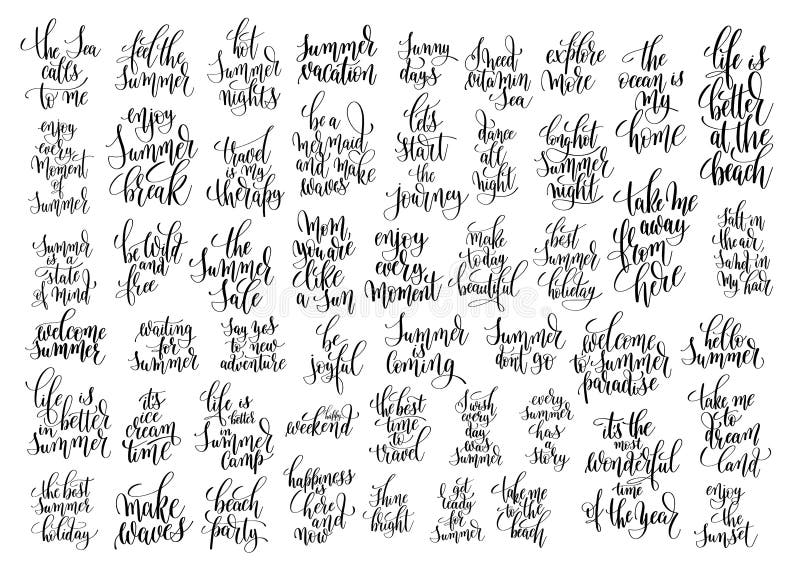 the Sea
calls
to me
feel the
Summer
hot
Summer
nights
Summer
vacation
Sunny
days
I need
vitamin
Sea
explore
more
the
ocean is
my
home
life is
better
at the
beach
enjoy
every
Moment
of
Summer
enjoy
Summer
break
travel
is my
therapy
be a
mermaid
and make
waves
let's
start
the
journey
dance
all
night
long hot
Summer
night
take me
away
from
here
Salt in
the air
Sand in
my hair
Summer
is a
state
of mind
be wild
and
free
the
Summer
Sale
Mom,
you are
like
a Sun
enjoy
every
Moment
make
today
beautiful
best
Summer
holiday
welcome
Summer
waiting
for
Summer
Say yes
to new
adventure
be
joyful
Summer
is
coming
Summer
don't go
welcome
to Summer
paradise
hello
Summer
life is
better
in
Summer
it's
ice
cream
time
life is
better
in
Summer
camp
happy
weekend
the best
time
to
travel
I wish
every
day
was
Summer
every
Summer
has
a
story
it's the
most
wonderful
time
of the year
take me
to
dream
land
the best
Summer
holiday
make
waves
beach
party
happiness
is
here
and
now
Shine
bright
I get
ready
for
Summer
take me
to the
beach
enjoy
the
Sunset